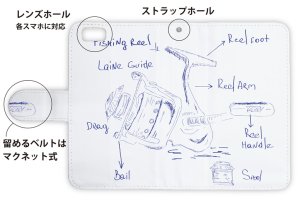 レンズホール
各スマホに対応
ストラップホール
Fishing Reel
Reel Foot
Laine Guide
Reel ARM
Drag
Reel
Handle
留めるベルトは
マクネット式
Bail